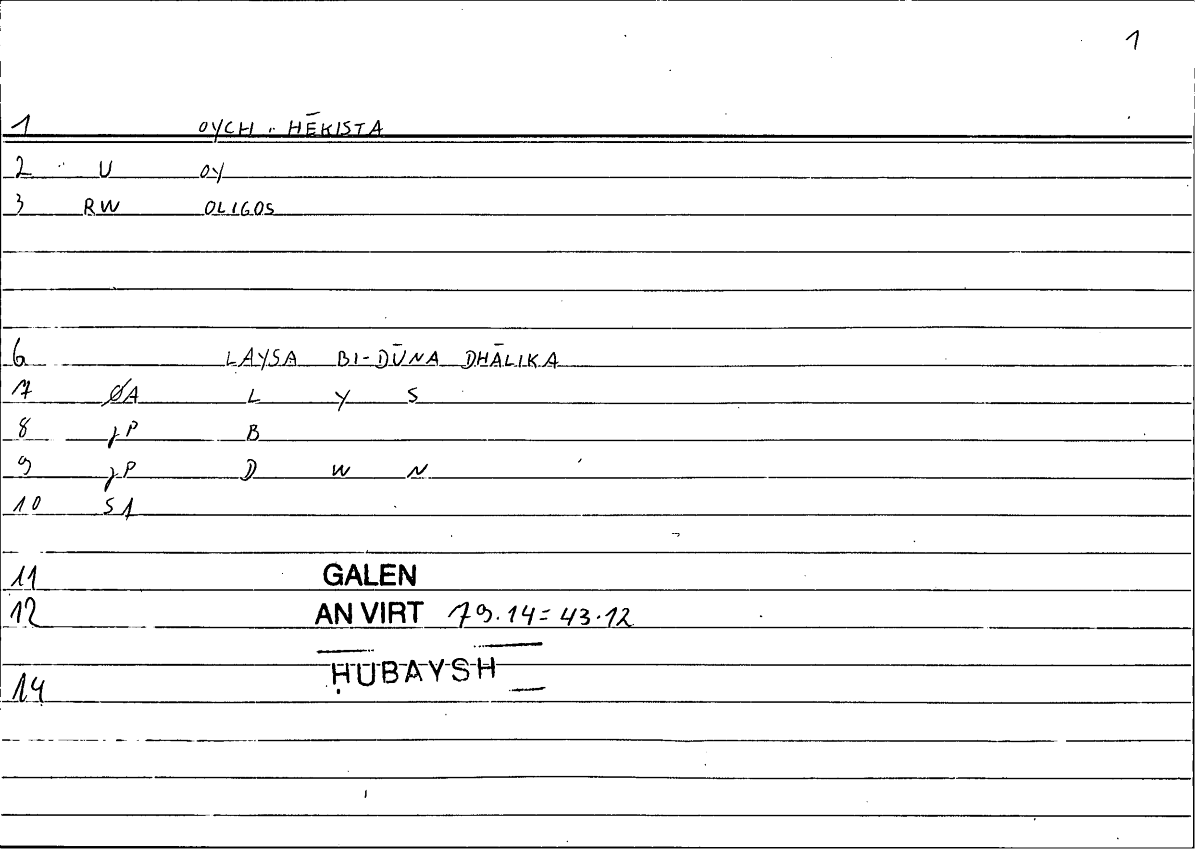 1
1 OYCH . HĒKISTA
2 U OY
3 RW OLIGOS
6 LAYSA BI-DŪNA DHĀLIKA
7 ØA L Y S
8 jP B
9 jP D W N
10 SA
11 GALEN
12 AN VIRT 79.14 = 43.12
ḤUBAYSH
14